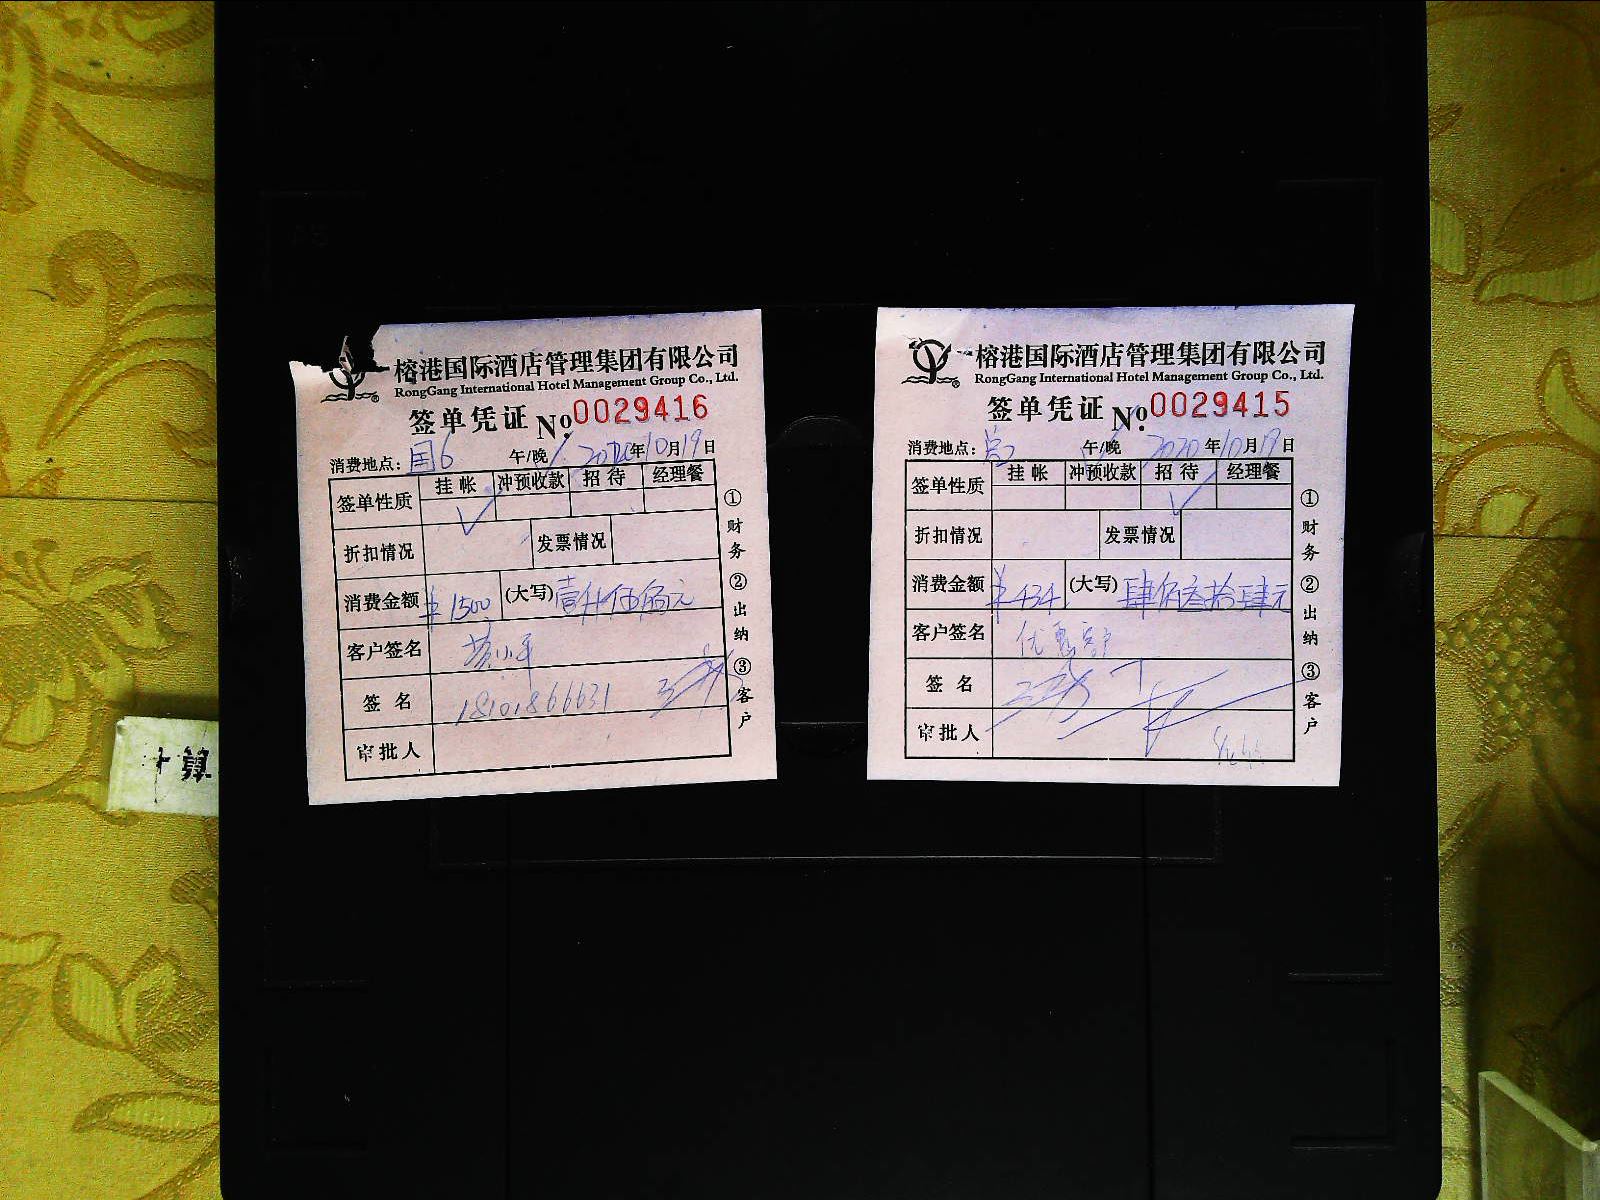 榕港国际酒店管理集团有限公司
RongGang International Hotel Management Group Co., Ltd.
签单凭证 No. 0029416
消费地点: 国6 午/晚 2020年10月19日
签单性质 挂帐 冲预收款 招待 经理餐
折扣情况 发票情况
消费金额 ¥1500 (大写) 壹仟伍佰元
客户签名
签名 18101866631
审批人
①财务 ②出纳 ③客户
榕港国际酒店管理集团有限公司
RongGang International Hotel Management Group Co., Ltd.
签单凭证 No. 0029415
消费地点: 午/晚 2020年10月19日
签单性质 挂帐 冲预收款 招待 经理餐
折扣情况 发票情况
消费金额 ¥434 (大写) 肆佰叁拾肆元
客户签名 优惠客户
签名
审批人
①财务 ②出纳 ③客户